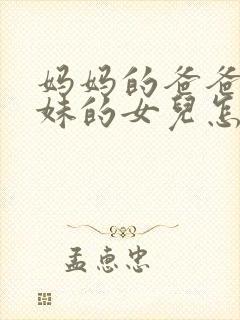 妈妈的爸爸
妹的女兒怎
孟惠忠